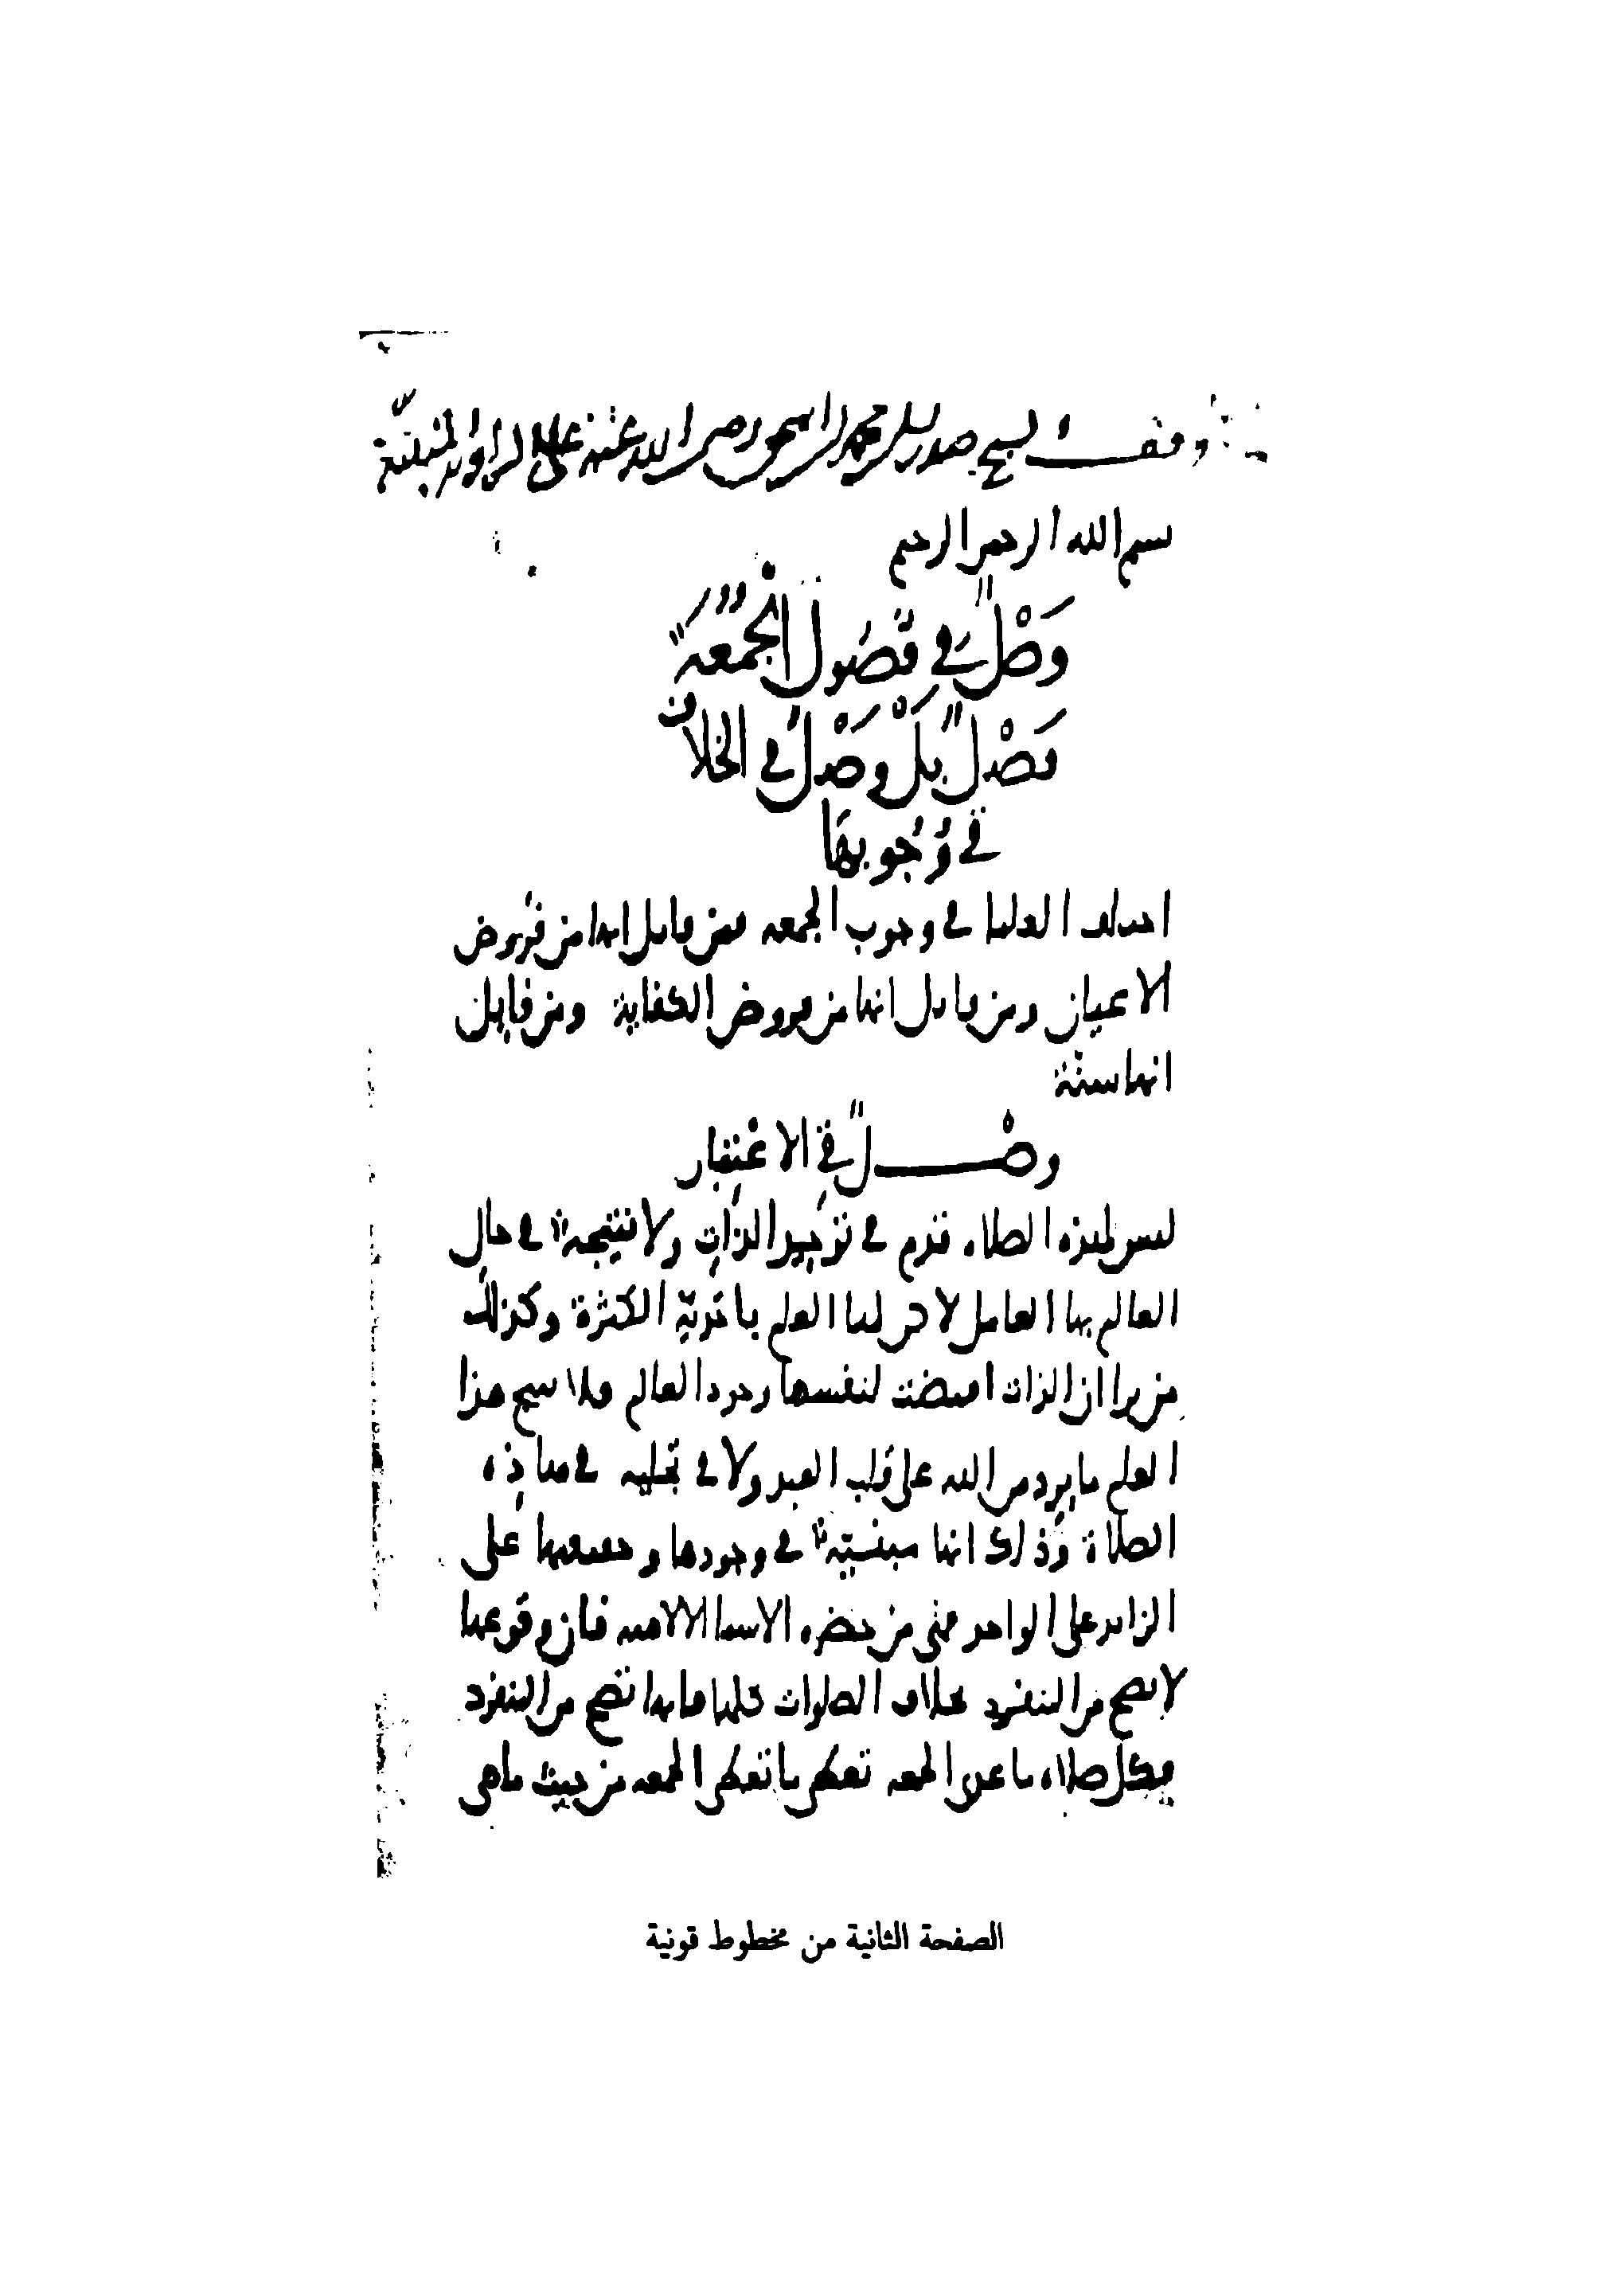 وقف الشيخ صدر الدين محمد بن اسحق رضى الله عنه على الزاوية
بسم الله الرحمن الرحيم
وَصْلٌ في فصُول الجُمُعَة
فَصْلٌ بَلْ وَصْلٌ في الخلاف
في وُجُوبهَا
اختلف العلما في وجوب الجمعه فمن قايل انها من فروض
الاعيان ومن قايل انها من فروض الكفاية ومن قايل
انها سنة
وصْل في الاعْتبَار
ليس لهذه الصلاه قدم في توحيد الذات ولا نتيجة في حال
العالم بها العامل لاكن لها العلم باحَديّة الكثرة وكذلك
من يرا ان الذات اقتضت لنفسها وجود العالم فلا ينتج هذا
العلم ما يرد من الله على قلب العبد ولا في تجليه في هاذه
الصلاة وذلك انها مبنية في وجودها وحقيقتها على
الزايد على الواحد فهي من حضره الاسما الالاهيه فان وقوعها
لا يصح من المنفرد بخلاف الصلوات كلها فانها تصح من المنفرد
فكل صلاه ما عدى الجمعه تعطى ما تعطى الجمعه من حيث ما هى
الصفحة الثانية من مخطوط قونية